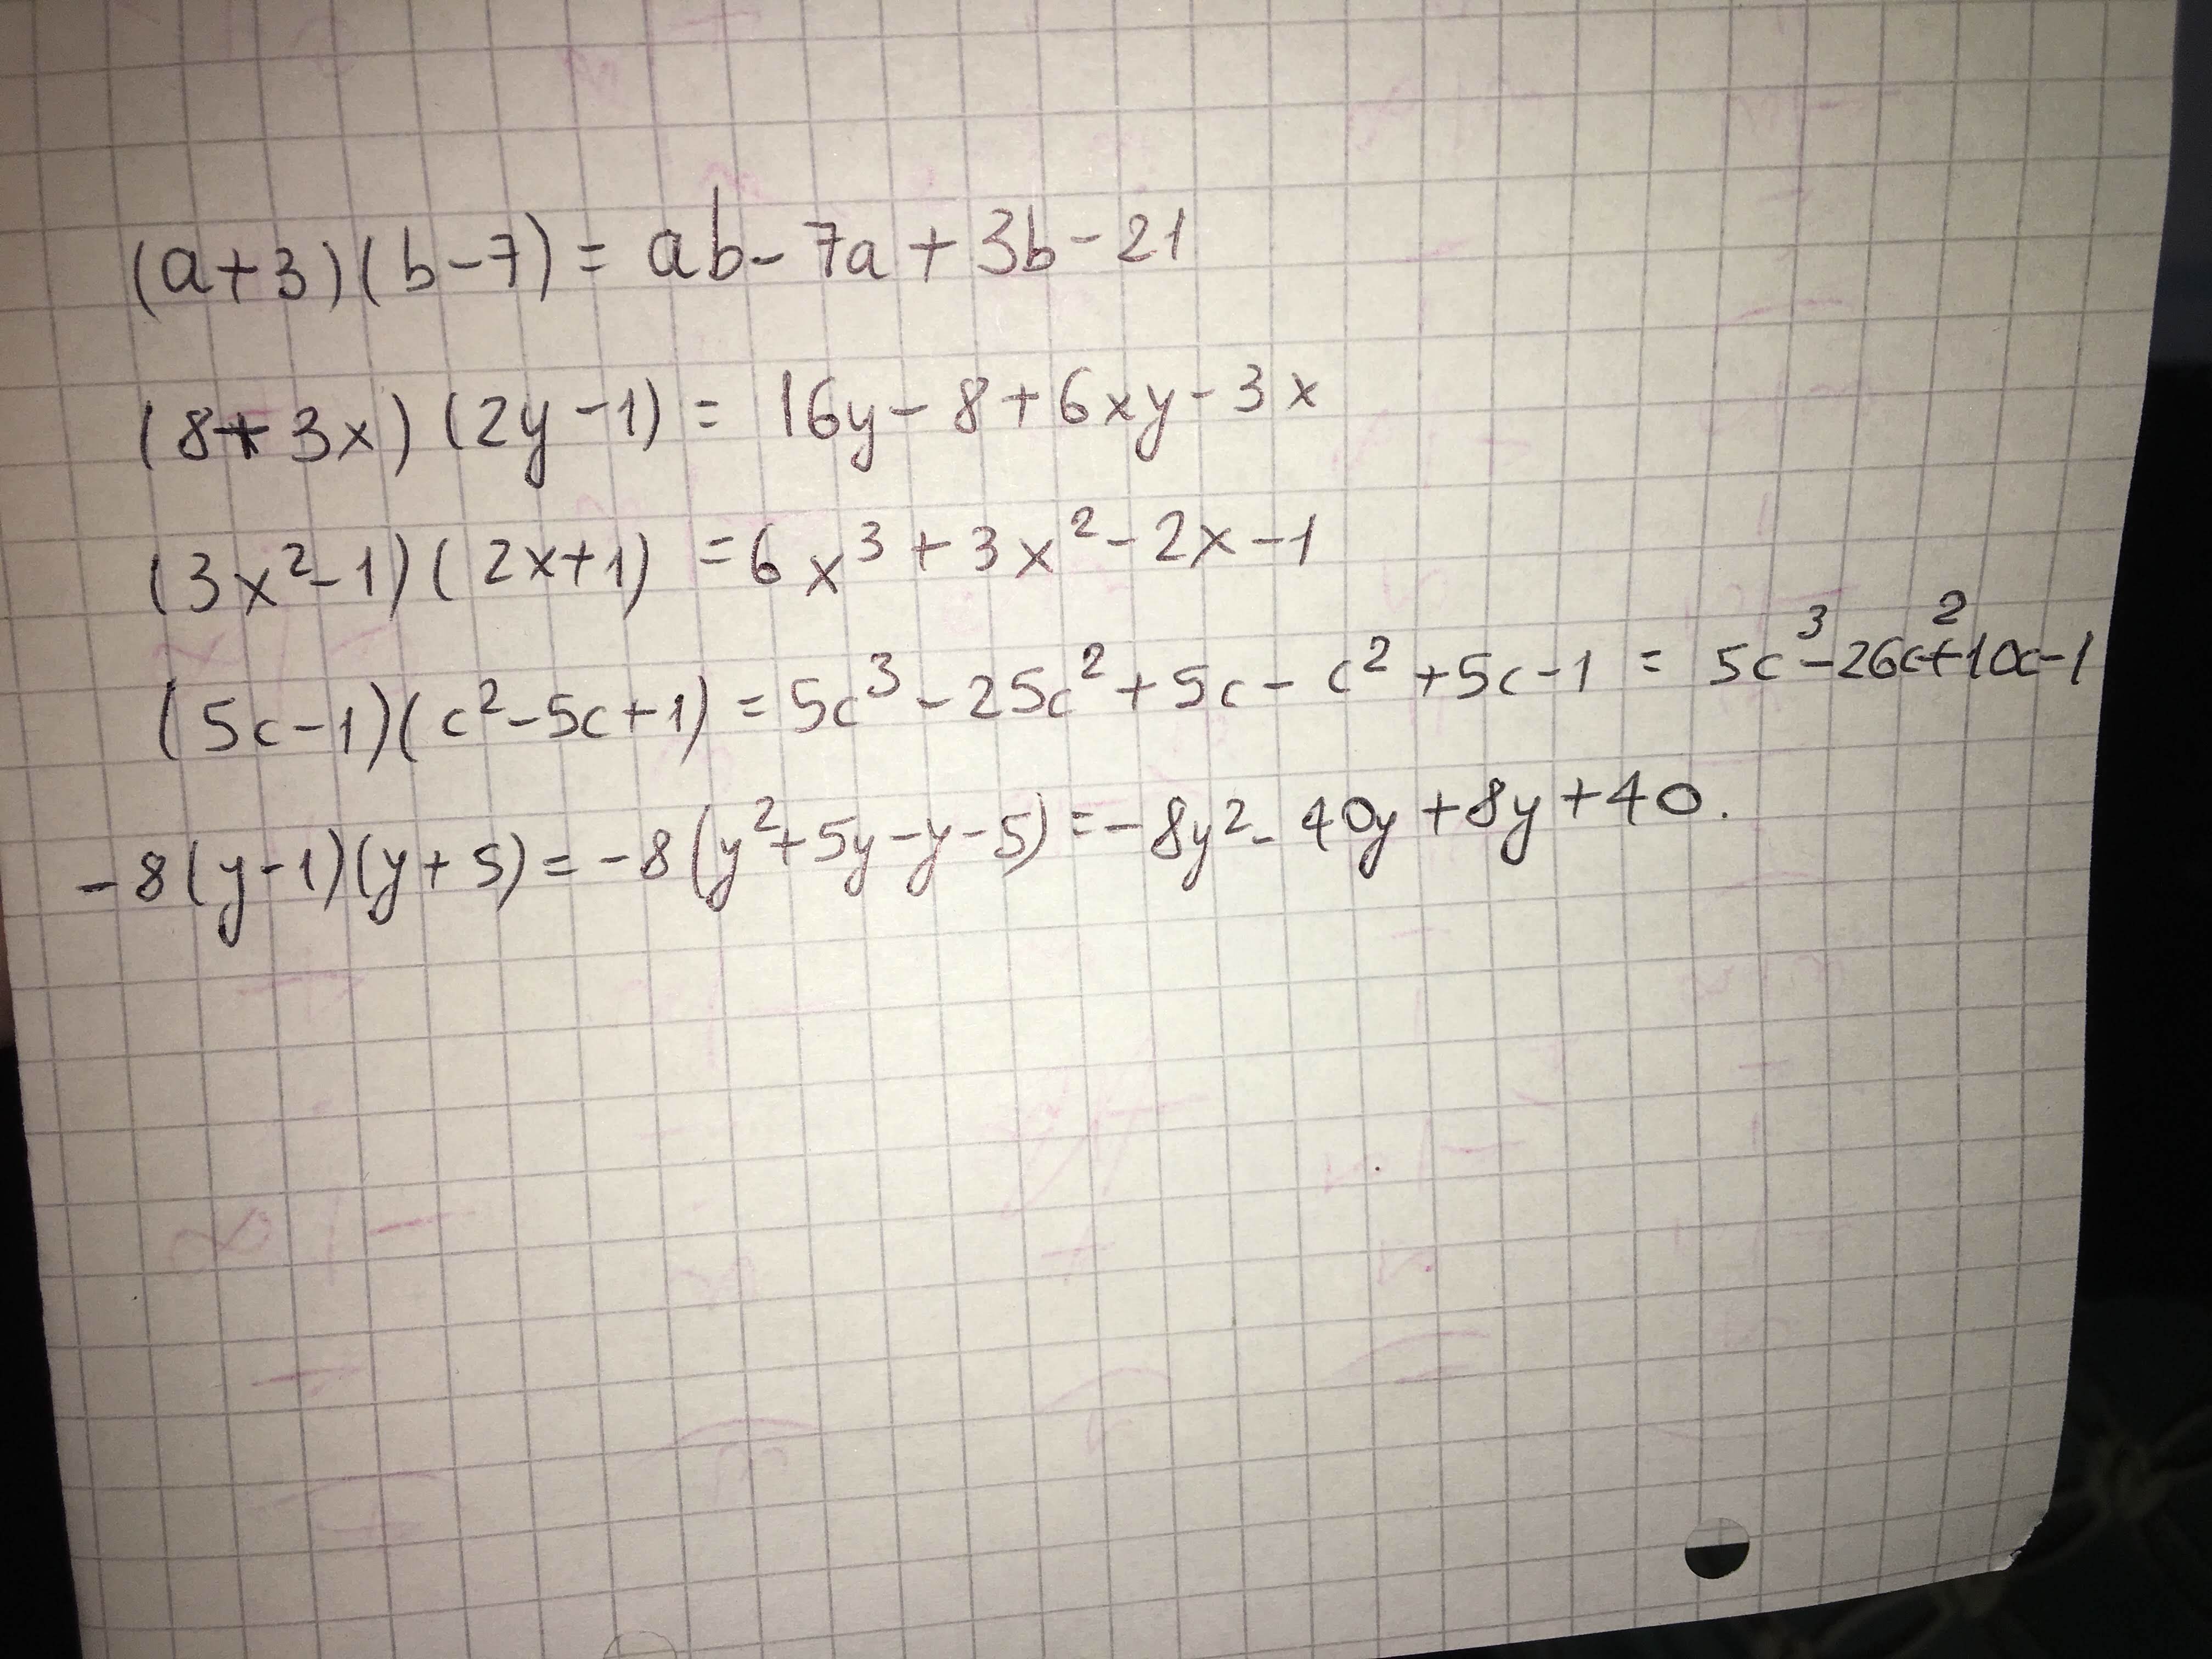 (a+3)(b-7) = ab - 7a + 3b - 21
(8+3x)(2y-1) = 16y - 8 + 6xy - 3x
(3x²-1)(2x+1) = 6x³ + 3x² - 2x - 1
(5c-1)(c²-5c+1) = 5c³ - 25c² + 5c - c² + 5c - 1 = 5c³ - 26c² + 10c - 1
-8(y-1)(y+5) = -8(y²+5y-y-5) = -8y² - 40y + 8y + 40.